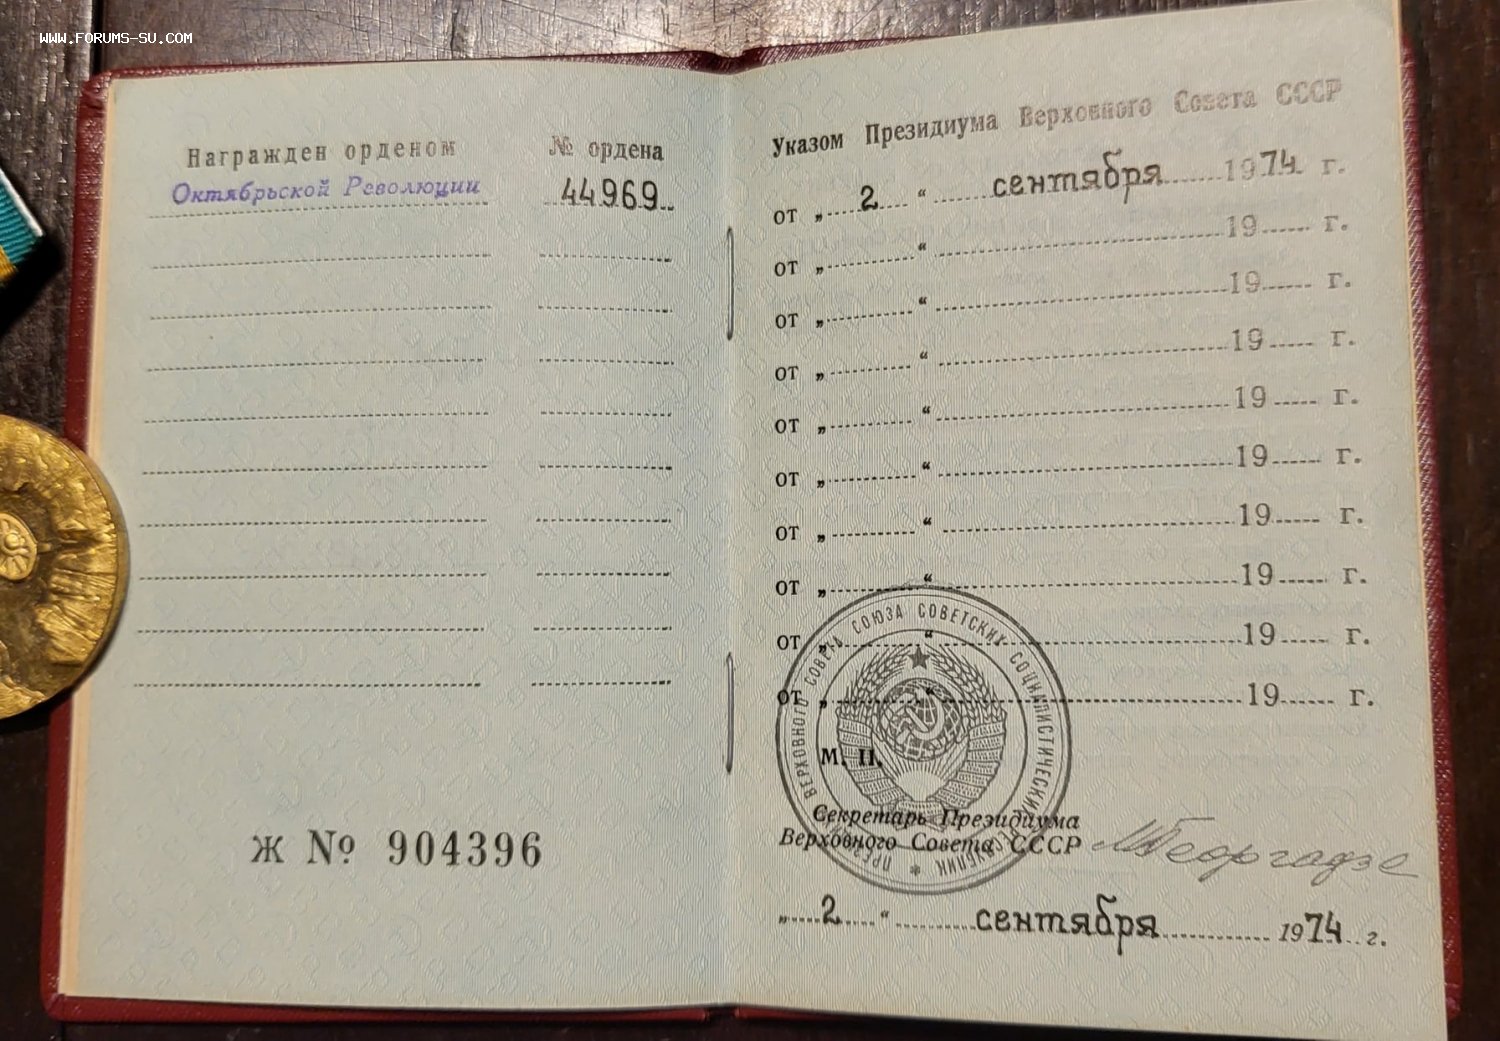 WWW.FORUMS-SU.COM
Награжден орденом
№ ордена
Октябрьской Революции
44969
Ж № 904396
Указом Президиума Верховного Совета СССР
от „ 2 “ сентября 1974 г.
от „ “ 19 г.
от „ “ 19 г.
от „ “ 19 г.
от „ “ 19 г.
от „ “ 19 г.
от „ “ 19 г.
от „ “ 19 г.
от „ “ 19 г.
от „ “ 19 г.
ПРЕЗИДИУМ ВЕРХОВНОГО СОВЕТА СОЮЗА СОВЕТСКИХ СОЦИАЛИСТИЧЕСКИХ РЕСПУБЛИК
М. П.
Секретарь Президиума
Верховного Совета СССР
МГеоргадзе
„ 2 “ сентября 1974 г.